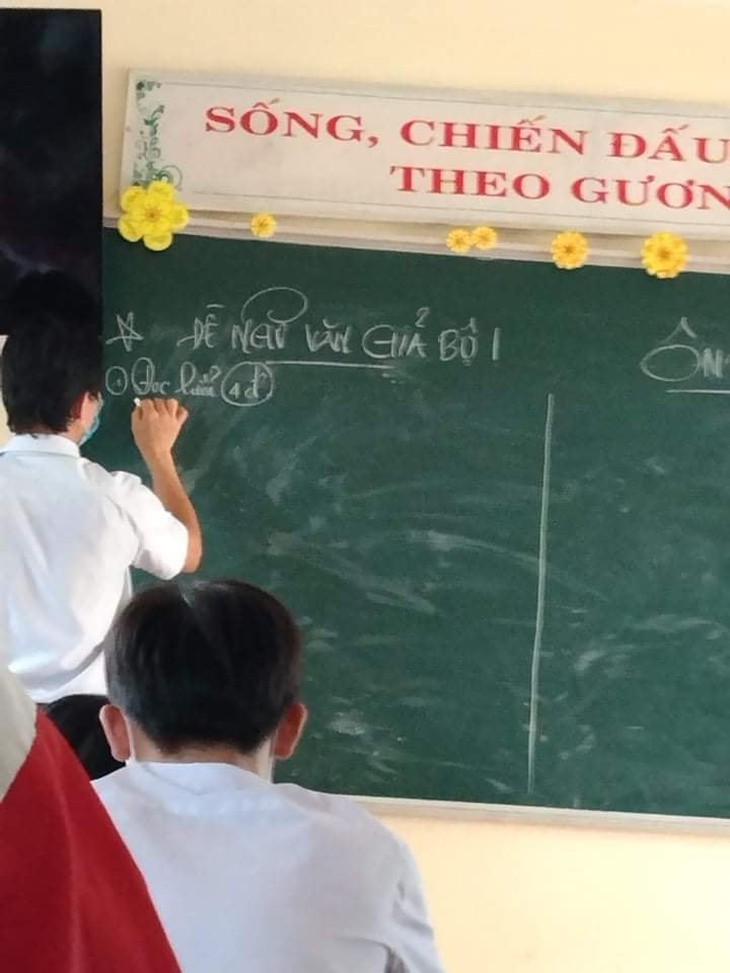 SỐNG, CHIẾN ĐẤU
THEO GƯƠN
ĐỀ NGỮ VĂN GIẢ BỘ 1
ÔN
① Đọc hiểu 4 đ